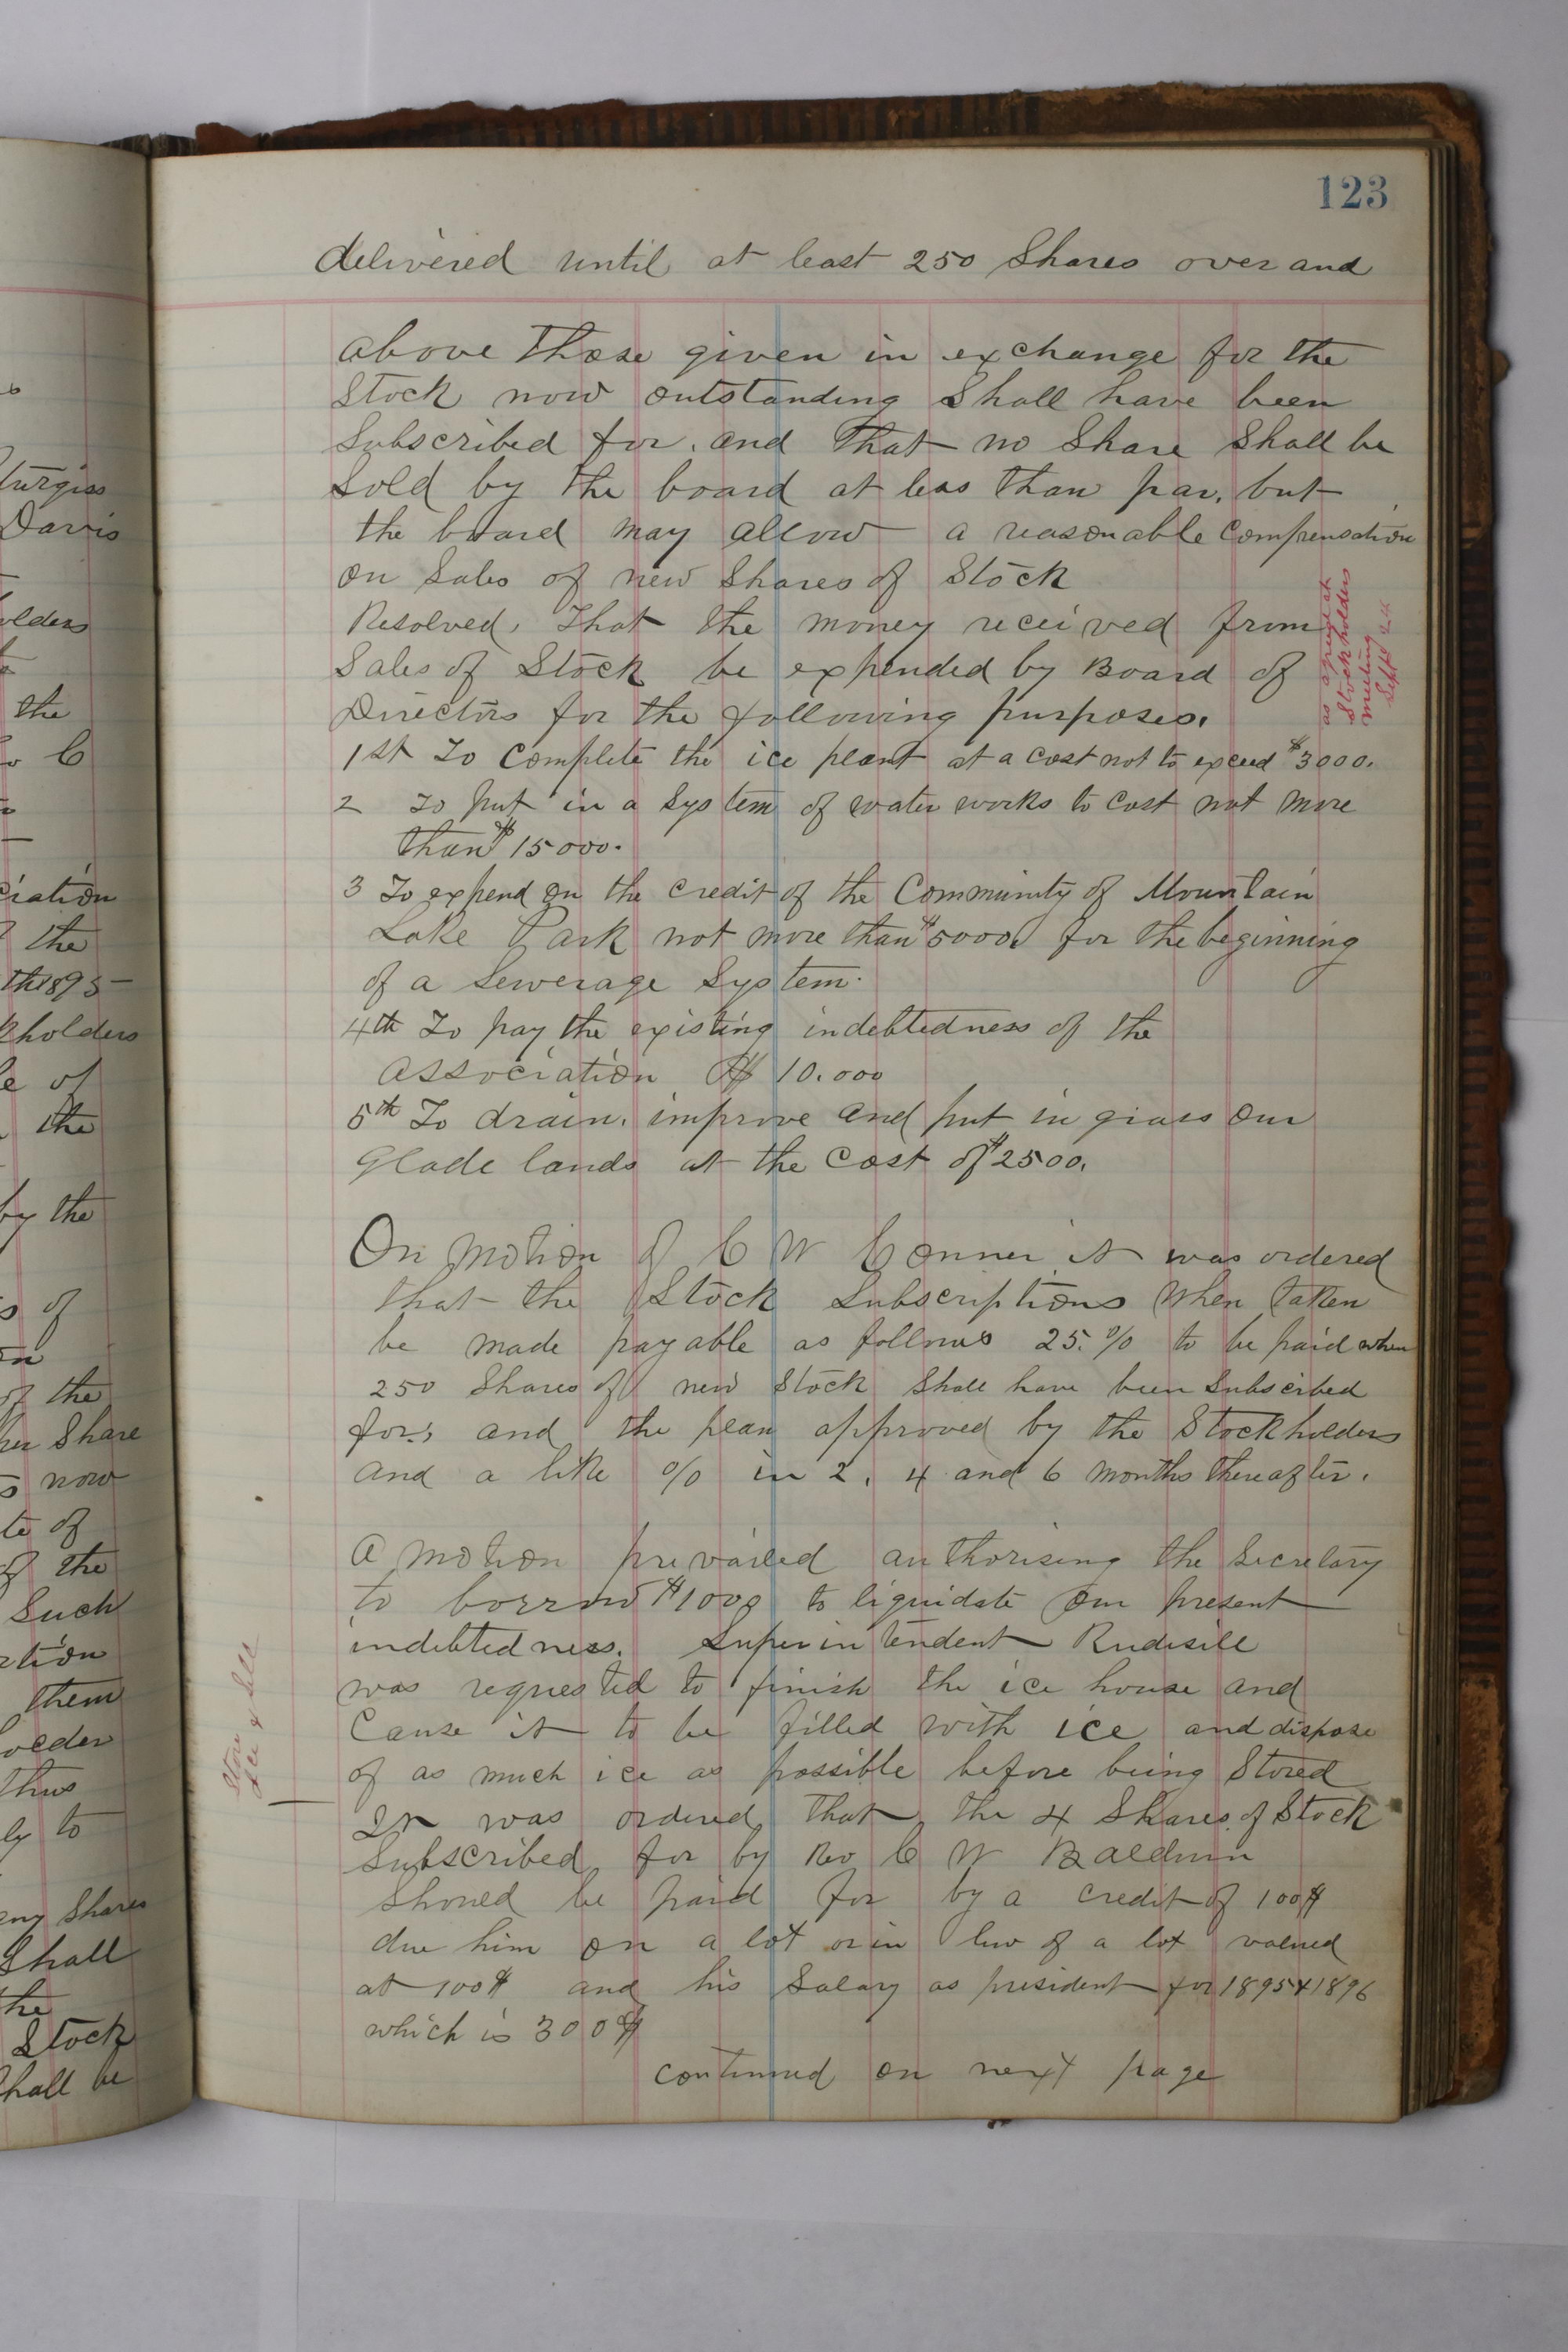 123
delivered until at least 250 Shares over and
above those given in exchange for the
Stock now outstanding Shall have been
Subscribed for. and that no Share Shall be
Sold by the board at less than par. but
the board may allow a reasonable Compensation
on Sales of new Shares of Stock
Resolved, That the money received from
Sales of Stock be expended by Board of
Directors for the following purposes.
as agreed at
Stockholders
meeting
Sept 24
1st To Complete the ice plant at a cost not to exceed $3000.
2 To put in a System of water works to cost not more
than $15000.
3 To expend on the credit of the Community of Mountain
Lake Park not more than $5000. for the beginning
of a Sewerage System.
4th To pay the existing indebtedness of the
Association $10.000
5th To drain. improve and put in grass our
Glade lands at the Cost of $2500.
On motion of C W Conner it was ordered
that the Stock Subscriptions when taken
be made payable as follows 25.% to be paid when
250 Shares of new Stock Shall have been Subscribed
for; and the plan approved by the Stockholders
and a like % in 2. 4 and 6 months thereafter.
A motion prevailed authorising the Secretary
to borrow $1000 to liquidate our present
indebtedness. Superintendent Rudisill
was requested to finish the ice house and
Cause it to be filled with ice and dispose
of as much ice as possible before being Stored
Store & Sell
Ice
It was ordered that the 4 Shares of Stock
Subscribed for by Rev C W Baldwin
Should be paid for by a credit of 100$
due him on a lot or in lieu of a lot valued
at 100$ and his Salary as president for 1895 & 1896
which is 300$
continued on next page
turgiss
Davis
olders
the
C
ciation
the
th 1895
kholders
le of
the
by the
s of
of the
her Share
s now
te of
of the
Such
ation
them
older
thus
ly to
any Shares
Shall
the
Stock
Shall be